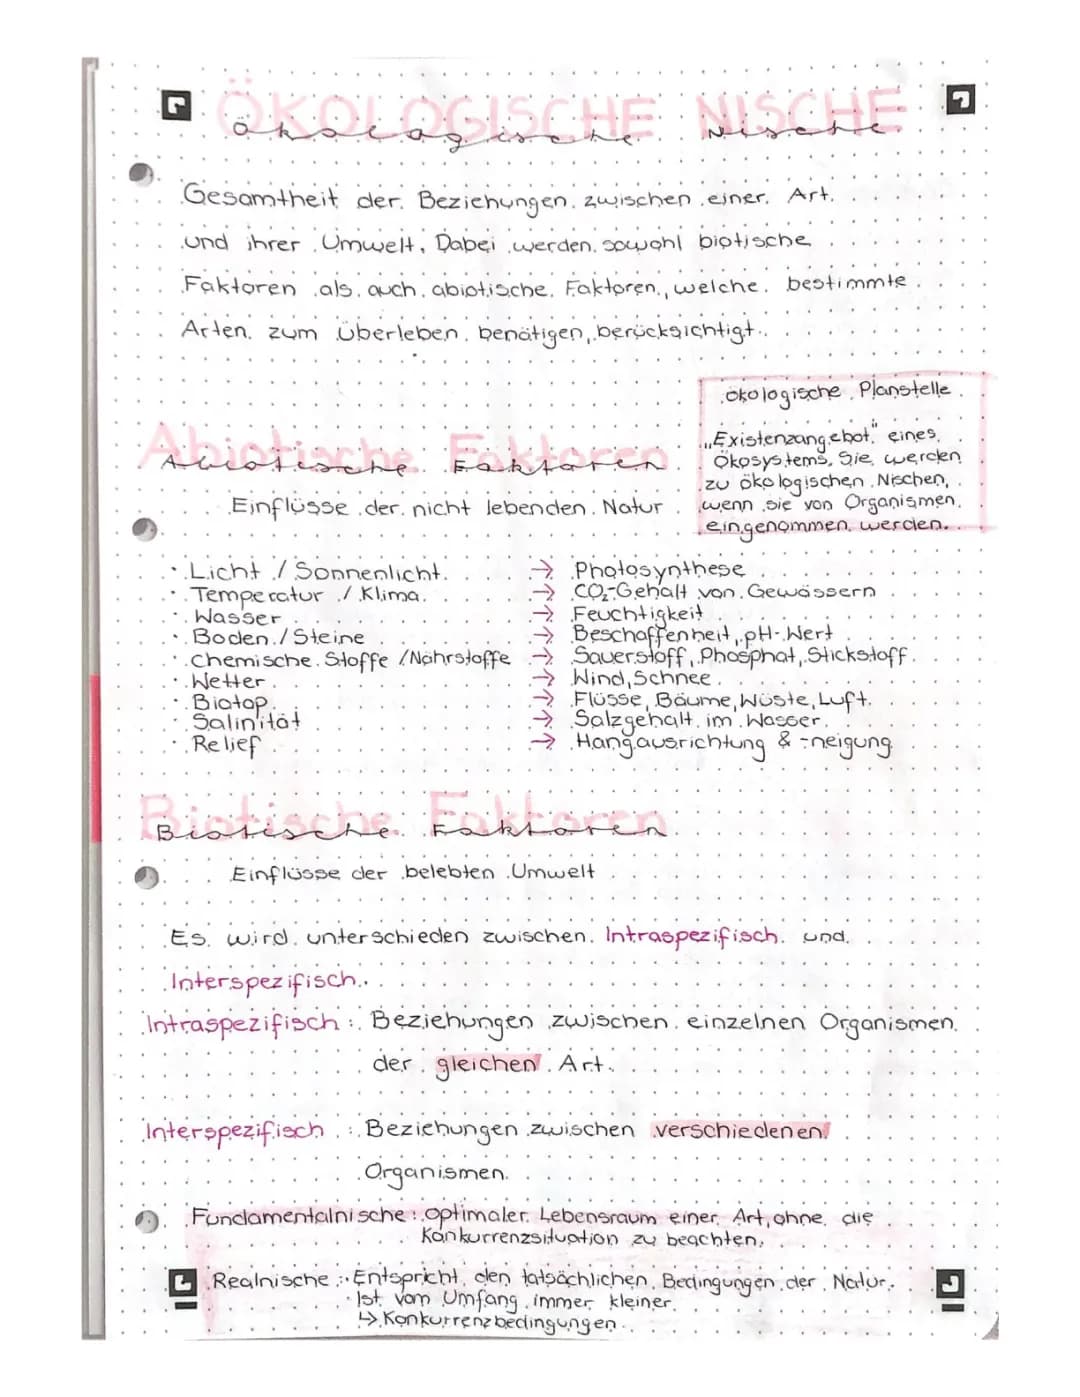 ÖKOLOGISCHE NISCHE
ökologische Nische
Gesamtheit der Beziehungen zwischen einer Art
und ihrer Umwelt. Dabei werden sowohl biotische
Faktoren als auch abiotische Faktoren, welche bestimmte
Arten zum überleben benötigen, berücksichtigt.
ökologische Planstelle
„Existenzangebot" eines
Ökosystems. Sie werden
zu ökologischen Nischen,
wenn sie von Organismen
eingenommen werden.
Abiotische Faktoren
Abiotische Faktoren
Einflüsse der nicht lebenden Natur
· Licht / Sonnenlicht → Photosynthese
· Temperatur / Klima → CO₂-Gehalt von Gewässern
· Wasser → Feuchtigkeit
· Boden / Steine → Beschaffenheit, pH-Wert
· Chemische Stoffe / Nährstoffe → Sauerstoff, Phosphat, Stickstoff
· Wetter → Wind, Schnee
· Biotop → Flüsse, Bäume, Wüste, Luft
· Salinität → Salzgehalt im Wasser
· Relief → Hangausrichtung & -neigung
Biotische Faktoren
Biotische Faktoren
Einflüsse der belebten Umwelt
Es wird unterschieden zwischen Intraspezifisch und
Interspezifisch.
Intraspezifisch: Beziehungen zwischen einzelnen Organismen
der gleichen Art.
Interspezifisch: Beziehungen zwischen verschiedenen
Organismen.
Fundamentalnische: optimaler Lebensraum einer Art, ohne die
Konkurrenzsituation zu beachten.
Realnische: · Entspricht den tatsächlichen Bedingungen der Natur.
· Ist vom Umfang immer kleiner
↳ Konkurrenzbedingungen